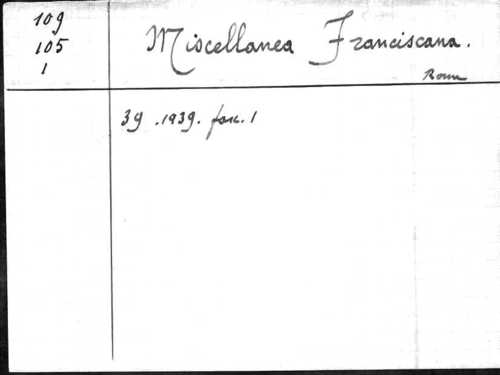 109
105
1
Miscellanea Franciscana.
Roma
39. 1939. fasc. 1